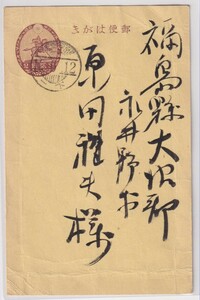 郵便はがき
福島縣大沼郡
永井野村
原田雅夫様